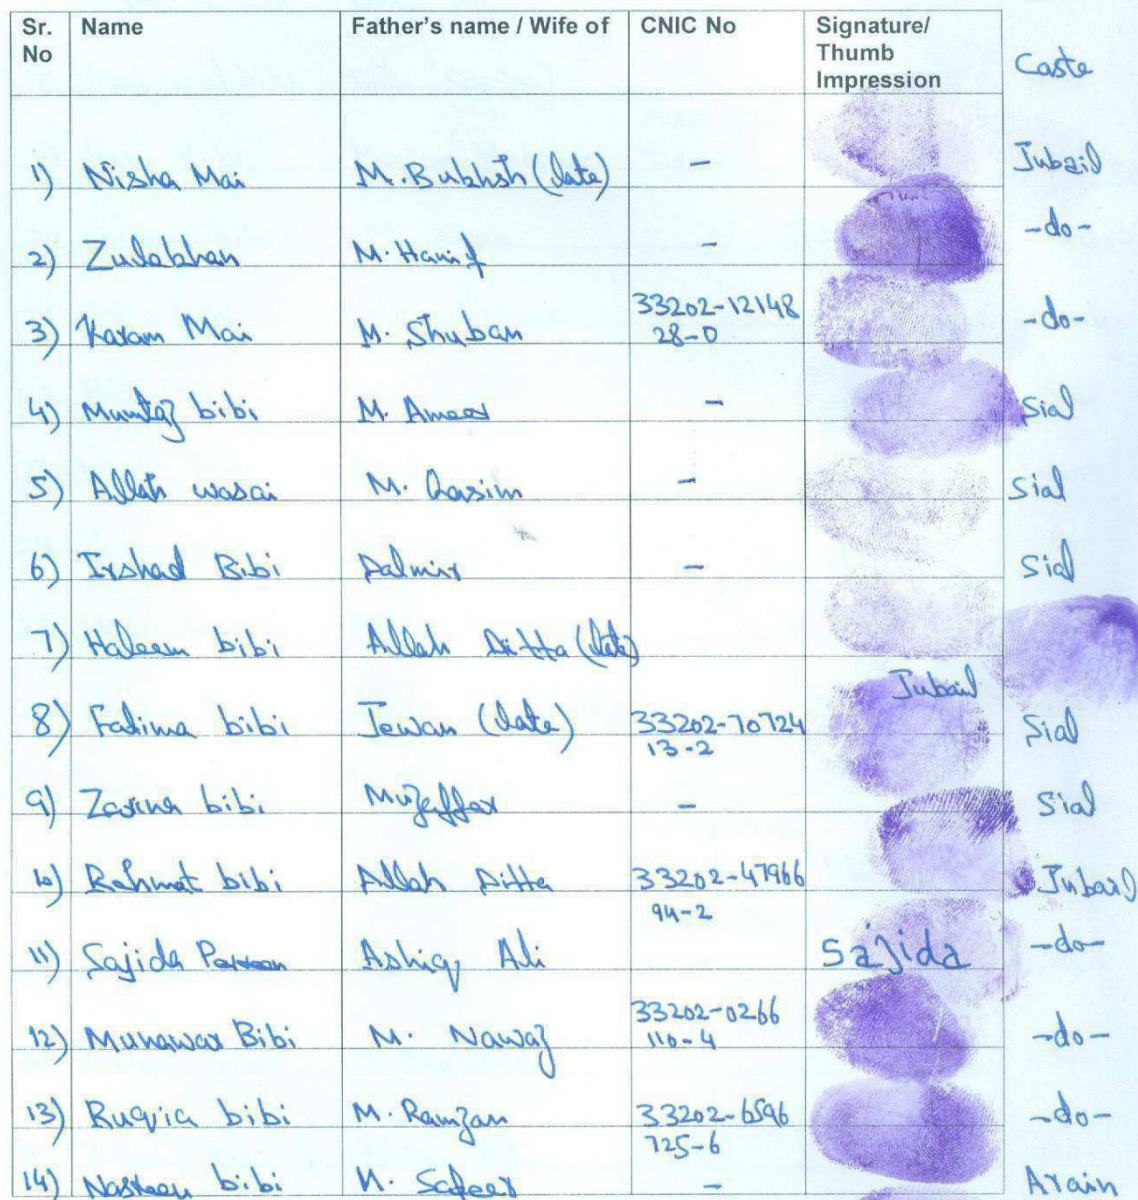 Sr. No Name Father's name / Wife of CNIC No Signature/ Thumb Impression Caste
1) Nisha Mai M. Bukhsh (late) - Jubail
2) Zulakhan M. Hanif - -do-
3) Karam Mai M. Shuban 33202-12148 28-0 -do-
4) Mumtaz bibi M. Ameer - Sial
5) Allah wasai M. Qasim - Sial
6) Irshad Bibi Dalmir - Sial
7) Haleem bibi Allah Ditta (late) Jubail
8) Fatima bibi Jewan (late) 33202-70724 13-2 Sial
9) Zarina bibi Muzaffar - Sial
10) Rehmat bibi Allah Ditta 33202-47966 94-2 Jubail
11) Sajida Parveen Ashiq Ali Sajida -do-
12) Munawar Bibi M. Nawaz 33202-0266 110-4 -do-
13) Ruqia bibi M. Ramzan 33202-6596 725-6 -do-
14) Nasreen bibi M. Safeer - Arain